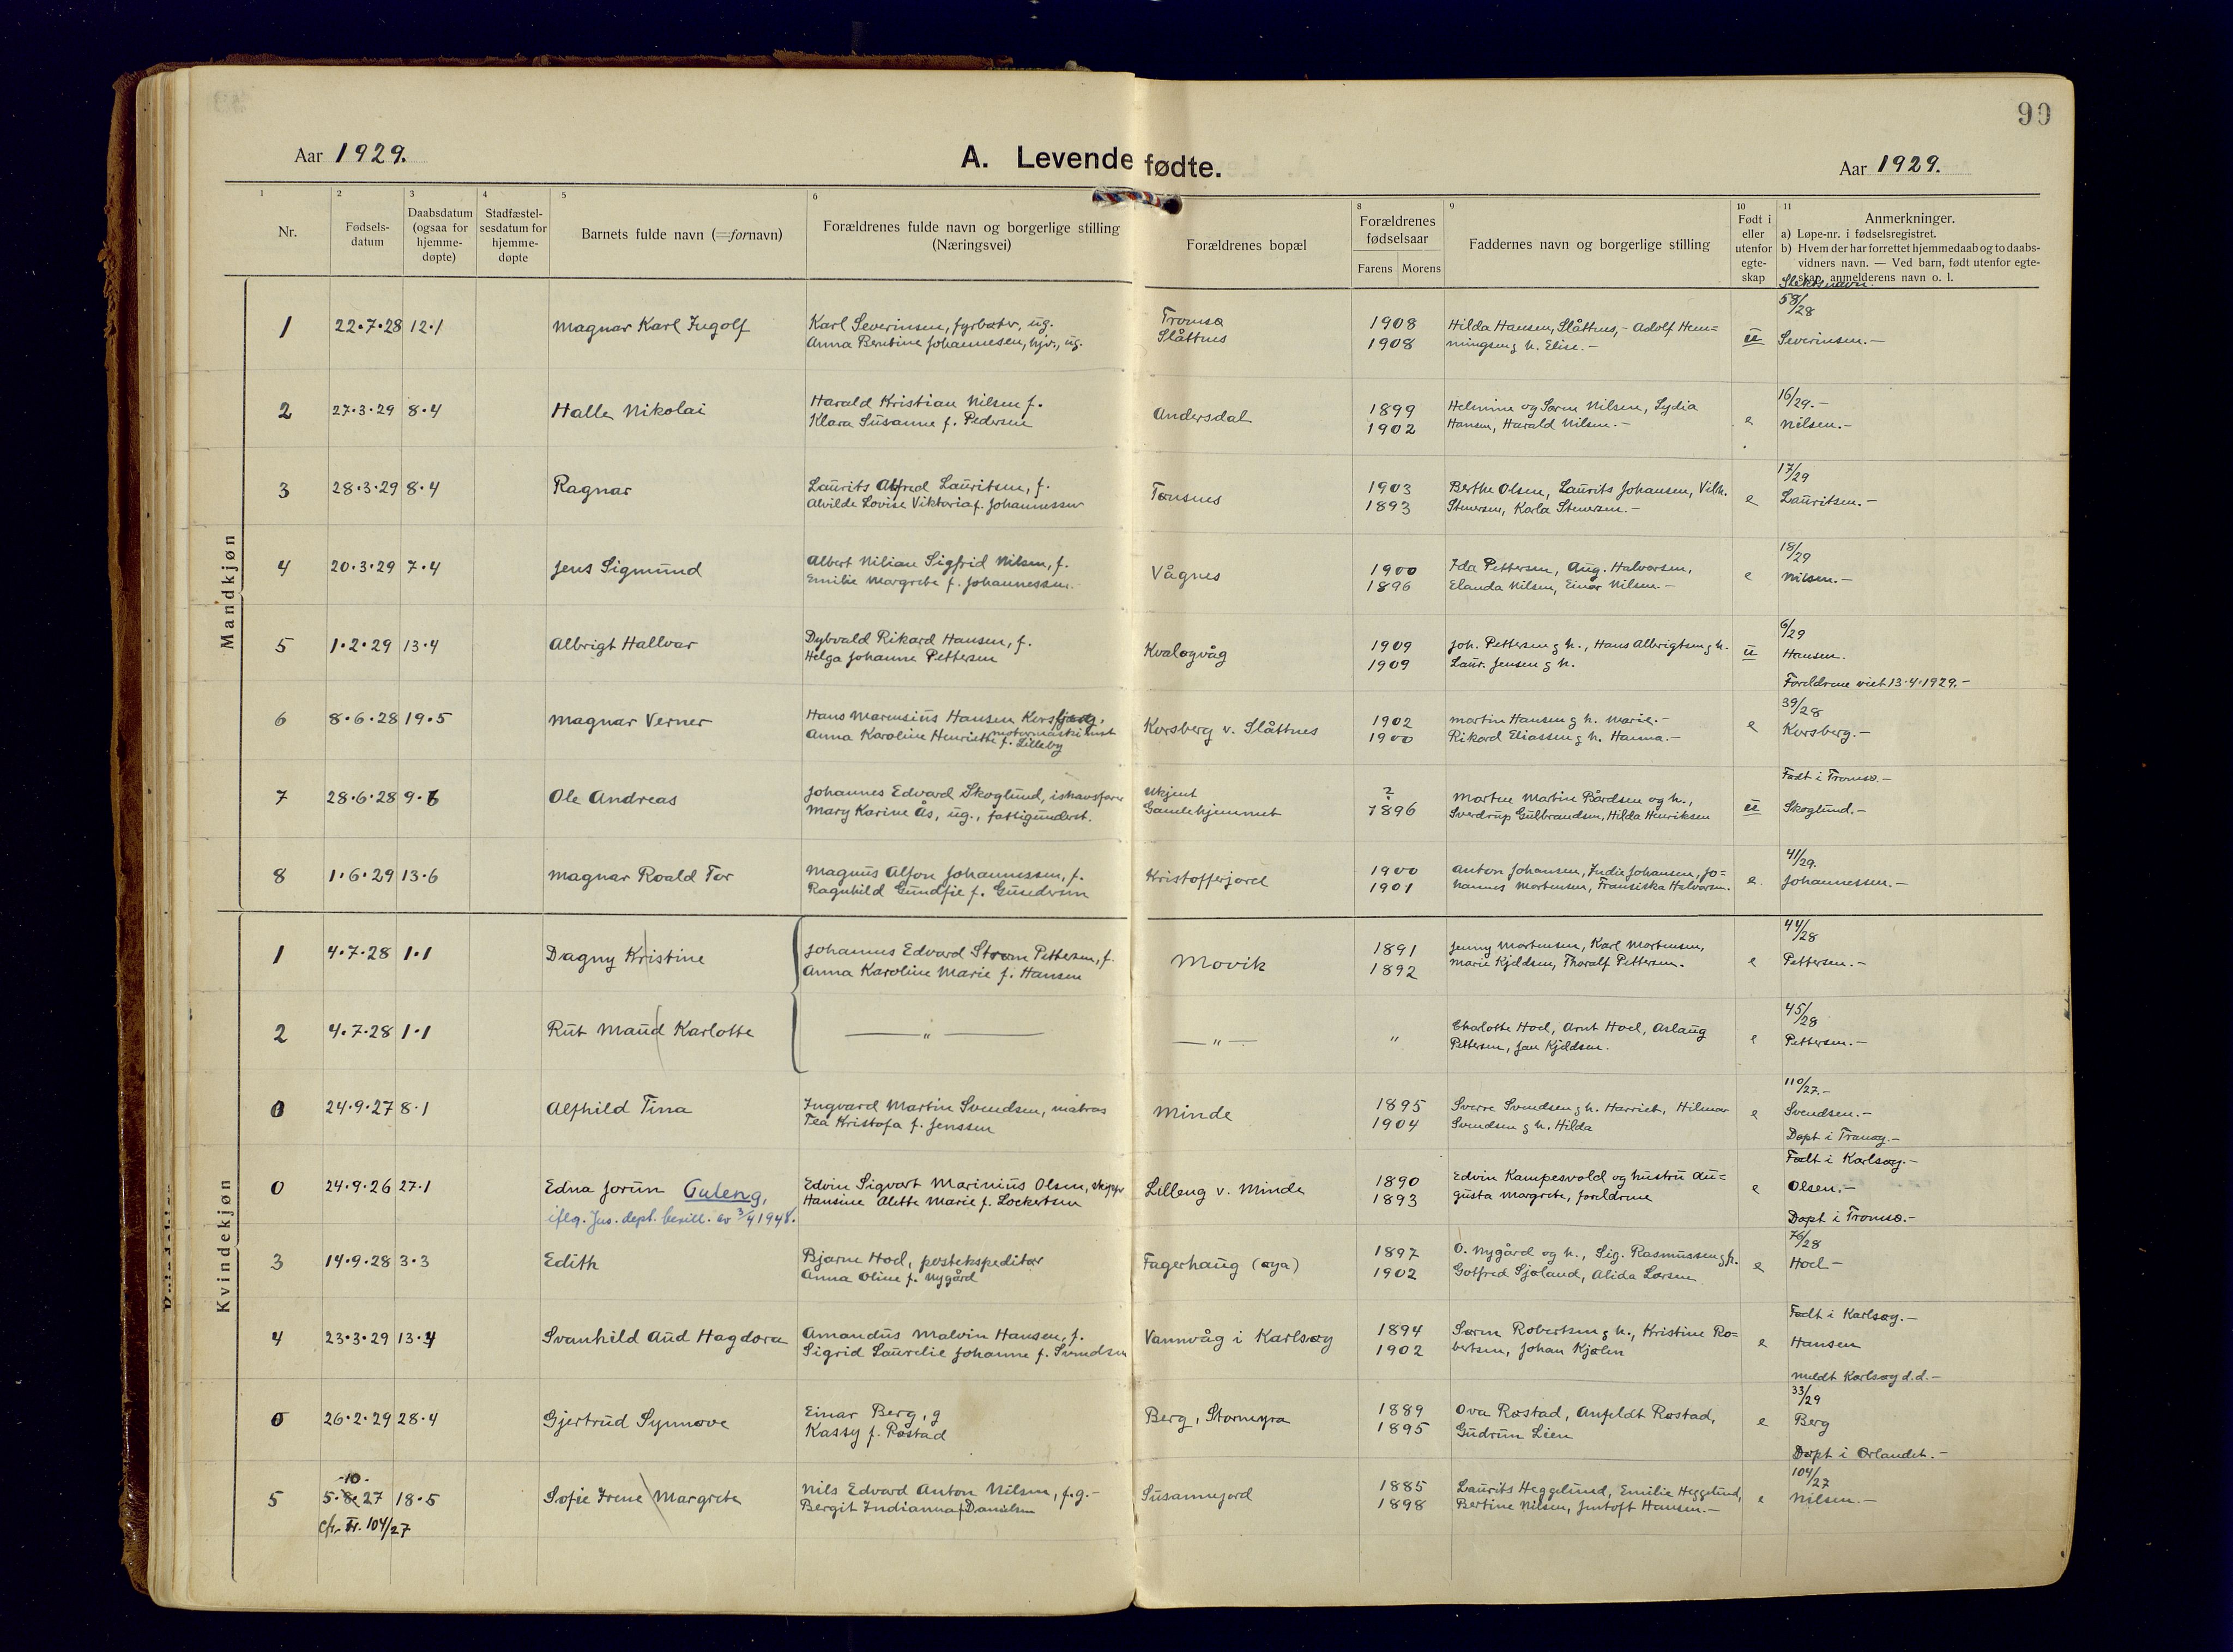 90
Aar 1929.
A. Levende fødte.
Aar 1929.
1 2 3 4 5 6 8 9 10 11
Nr.
Fødsels-
datum
Daabsdatum
(ogsaa for
hjemme-
døpte)
Stadfæstel-
sesdatum for
hjemme-
døpte
Barnets fulde navn (=fornavn)
Forældrenes fulde navn og borgerlige stilling
(Næringsvei)
Forældrenes bopæl
Forældrenes
fødselsaar
Farens Morens
Faddernes navn og borgerlige stilling
Født i
eller
utenfor
egte-
skap
Anmerkninger.
a) Løpe-nr. i fødselsregistret.
b) Hvem der har forrettet hjemmedaab og to daabs-
vidners navn. — Ved barn, født utenfor egte-
skap, anmelderens navn o. l.
Slektsnavn.
Mandkjøn
58/28
1 22.7.28 12.1 Magnar Karl Ingolf Karl Severinsen, fyrbøter, ug. Tromsø 1908 Hilda Hansen, Slåttnes, - Adolf Hem=
Anna Berntine Johannesen, hjv., ug. Slåttnes 1908 mingsen g h. Elise. - u Severinsen. -
16/29. -
2 27.3.29 8.4 Halle Nikolai Harald Kristian Nilsen f. Andersdal 1899 Helmine og Søren Nilsen, Lydia
Klara Susanne f. Pedersen 1902 Hansen, Harald Nilsen. - e Nilsen. -
17/29
3 28.3.29 8.4 Ragnar Laurits Alfred Lauritsen, f. Tønsnes 1903 Berthe Olsen, Laurits Johansen, Vilh.
Alvilde Lovise Viktoria f. Johannessen 1893 Stenersen, Karla Stenersen. - e Lauritsen. -
18/29
4 20.3.29 7.4 Jens Sigmund Albert Nilian Sigfrid Nilsen, f. Vågnes 1900 Ida Pettersen, Aug. Halvorsen,
Emilie Margrete f. Johannessen. 1896 Elanda Nilsen, Einar Nilsen. - e Nilsen. -
6/29
5 1.2.29 13.4 Albrigt Hallvar Dybvald Rikard Hansen, f. Kvaløyvåg 1909 Joh. Pettersen g h., Hans Albrigtsen g h.
Helga Johanne Pettersen 1909 Laur. Jensen g h. u Hansen.
Foreldrene viet 13.4.1929. -
39/28
6 8.6.28 19.5 Magnar Verner Hans Marensius Hansen Korsberg, motormaskinist Korsberg v. Slåttnes 1902 Martin Hansen g h. Marie. -
Anna Karoline Henriette f. Lilleby 1900 Rikard Eliassen g h. Hanna. - e Korsberg. -
Født i Tromsø. -
7 28.6.28 9.6 Ole Andreas Johannes Edvard Skoglund, ishavsfarer Ukjent ? Morten Martin Bårdsen og h.,
Mary Karine Ås, ug., fattigunderst. Gamlehjemmet 1896 Sverdrup Gulbrandsen, Hilda Henriksen u Skoglund. -
41/29.
8 1.6.29 13.6 Magnar Roald Tor Magnus Alfon Johannessen, f. Kristofferjord 1900 Anton Johansen, Indie Johansen, Jo=
Ragnhild Gundfie f. Gundersen 1901 hannes Mortensen, Fransiska Halvorsen. e. Johannessen. -
Kvindekjøn
44/28
1 4.7.28 1.1 Dagny Kristine Johannes Edvard Strøm Pettersen, f. Movik 1891 Jenny Mortensen, Karl Mortensen,
Anna Karoline Marie f. Hansen 1892 Marie Kjeldsen, Thoralf Pettersen. e Pettersen. -
45/28
2 4.7.28 1.1 Rut Maud Karlotte — " — — " — " Charlotte Hoel, Arnt Hoel, Aslaug
Pettersen, Jan Kjeldsen. e Pettersen. -
110/27. -
0 24.9.27 8.1 Alfhild Tina Ingvard Martin Svendsen, matros Minde 1895 Sverre Svendsen g h. Harriet, Hilmar
Tea Kristofa f. Jenssen 1904 Svendsen g h. Hilda e Svendsen. -
Døpt i Tranøy. -
Født i Karlsøy. -
0 24.9.26 27.1 Edna Jorun Guleng, Edvin Sigvart Marinius Olsen, skipsf. Lilleng v. Minde 1890 Edvin Kampesvold og hustru Au=
iflg. Jus. dept. bevill. av 3/4 1948. Hansine Alette Marie f. Lockertsen 1893 gusta Margrete, foreldrene e Olsen. -
Døpt i Tromsø. -
76/28
3 14.9.28 3.3 Edith Bjarne Hoel, postekspeditør Fagerhaug (øya) 1897 O. Nygård og h., Sig. Rasmussen g h.
Anna Oline f. Nygård 1902 Gotfred Sjøland, Alida Larsen e Hoel -
Født i Karlsøy. -
4 23.3.29 13.4 Svanhild Aud Hagdora Amandus Malvin Hansen, f. Vannvåg i Karlsøy 1894 Søren Robertsen g h., Kristine Ro=
Sigrid Laurelie Johanne f. Svendsen 1902 bertsen, Johan Kjølen e Hansen
Meldt Karlsøy d.d. -
33/29
0 26.2.29 28.4 Gjertrud Synnøve Einar Berg, g Berg, Stormyra 1889 Ova Røstad, Anfeldt Røstad,
Kassy f. Røstad 1895 Gudrun Lien e Berg
Døpt i Ørlandet. -
-10- 104/27
5 5.8.27 18.5 Sofie Irene Margrete Nils Edvard Anton Nilsen, f.g. - Susannejord 1885 Laurits Heggelund, Emilie Heggelund,
Bergit Indianna f. Danielsen 1898 Bertine Nilsen, Jentoft Hansen. - e Nilsen. -
Cfr. Fr. 104/27